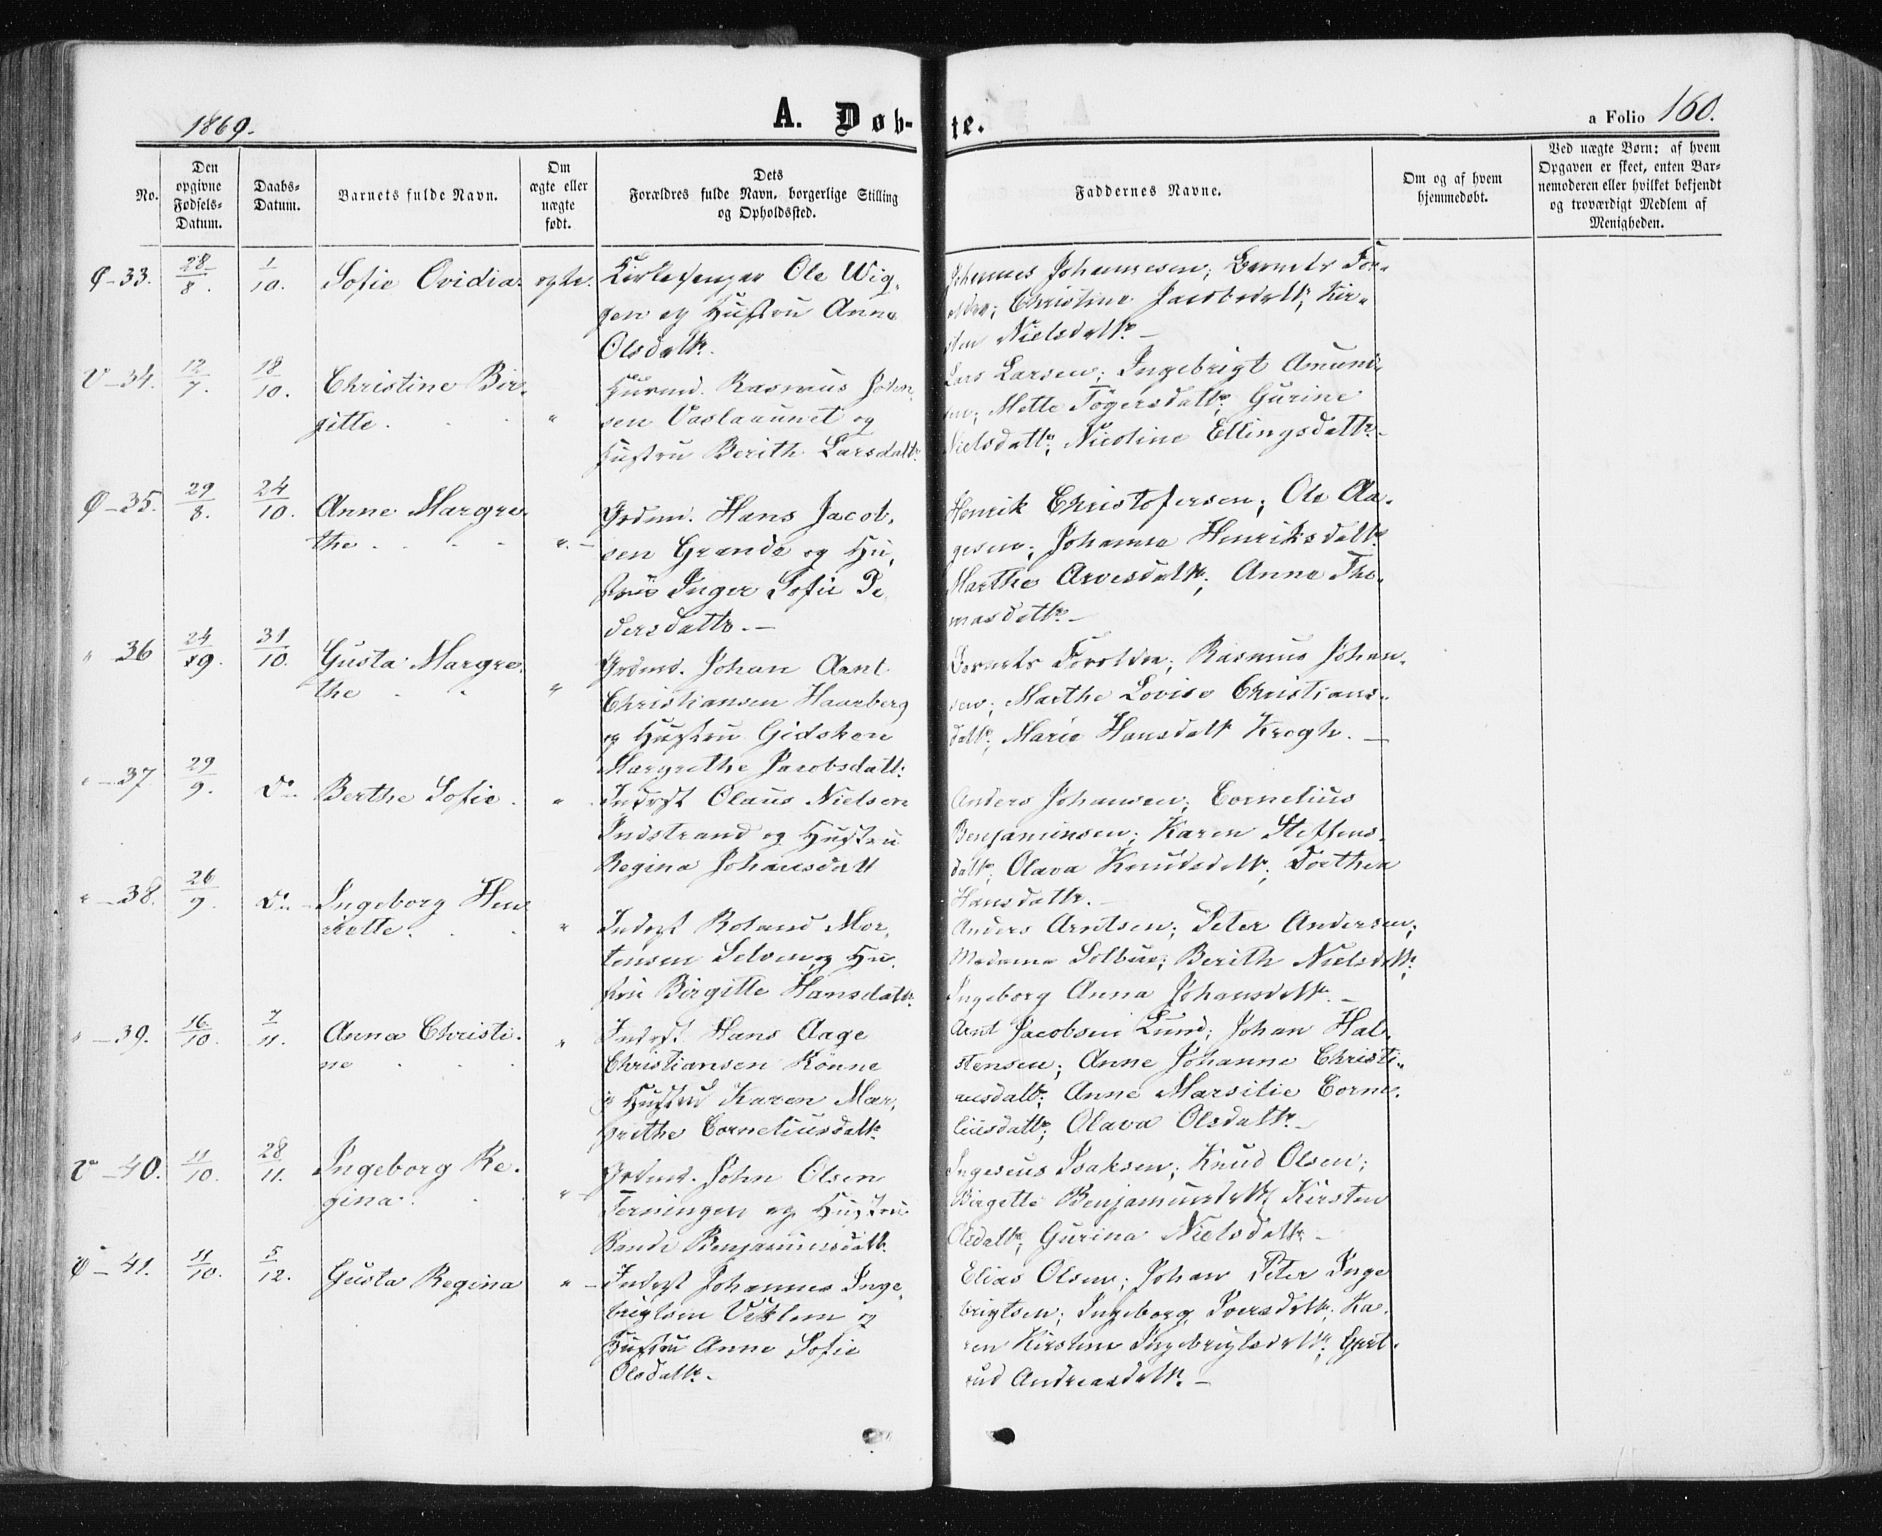 1869.
A. Døb-
te.
a Folio 160.
No.
Den opgivne Fødsels-Datum.
Daabs-Datum.
Barnets fulde Navn.
Om ægte eller uægte født.
Dets Forældres fulde Navn, borgerlige Stilling og Opholdssted.
Faddernes Navne.
Om og af hvem hjemmedøbt.
Ved uægte Børn: af hvem Opgaven er skeet, enten Barnemoderen eller hvilket bekjendt og troværdigt Medlem af Menigheden.
Ø-33. 28/8. 1/10. Sofie Ovidia. ægte. Kirkesanger Ole Wig-
gen og Hustru Anne
Olsdatr.
Johannes Johannesen; Barnets For-
ældre; Christine Jacobsdatr; Kir-
sten Nielsdatr. —
V-34. 12/7. 18/10. Christine Bir-
gitte. " Husmd. Rasmus Johan-
sen Vaslaaunet og
Hustru Berith Larsdatr.
Lars Larsen; Ingebrigt Amund-
sen; Mette Tøgersdatr; Gurine
Nielsdatr; Nicoline Ellingsdatr. —
Ø-35. 29/8. 24/10. Anne Margre-
the. ". — Grdmd. Hans Jacob-
sen Grande og Hu-
stru Inger Sofie Pe-
dersdatr. —
Henrik Christofersen; Ole Aa-
gesen; Johanna Henriksdatr.
Marthe Arvesdatr; Anne Tho-
masdatr. —
" 36 24/9. 31/10. Gusta Margre-
the " Grdmd. Johan Arnt
Christiansen Haarberg
og Hustru Gidsken
Margrethe Jacobsdatr.
Barnets Forældre; Rasmus Johan-
sen; Marthe Lovise Christians-
datr; Marie Hansdatr Krogh. —
" — 37 29/9. Do. Berthe Sofie. " Inderst Olaus Nielsen
Indstrand og Hustru
Regina Johansdatr
Anders Johansen; Cornelius
Benjaminsen; Karen Steffens-
datr; Olava Knudsdatr; Dorthea
Hansdatr. —
" — 38. 26/9. Do. Ingeborg Hen-
riette. " Inderst Roland Mor-
tensen Selven og Hu-
stru Birgitte Hansdatr.
Anders Arntsen; Peter Andersen;
Madame Solbue; Berith Nielsdatr;
Ingeborg Anna Johansdatr. —
" — 39. 16/10. 7/11. Anna Christi-
ne " Inderst. Hans Aage
Christiansen Rønne
og Hustru Karen Mar-
grethe Corneliusdatr.
Arnt Jacobsen Lund; Johan Hal-
stensen; Anne Johanne Christi-
ansdatr; Anne Marsilie Corne-
liusdatr; Olava Olsdatr. —
V — 40. 11/10. 28/11. Ingeborg Re-
gina. " Grdmd. John Olsen
Terningen og Hustru
Benjaminsdatr.
Isaksen; Knud Olsen;
Birgitte Benjaminsdatr Kirsten
Olsdatr; Gurina Nielsdatr. —
Ø — 41. 11/10. 5/12. Gusta Regina " — Inderst Johannes Inge-
brigtsen Viklem og
Hustru Anne Sofie
Olsdatr. —
Elias Olsen; Johan Peter Inge
brigtsen; Ingeborg Iversdatr. Ka-
ren Kirstine Ingebrigtsdatr. Gjert-
rud Andreasdatr. —